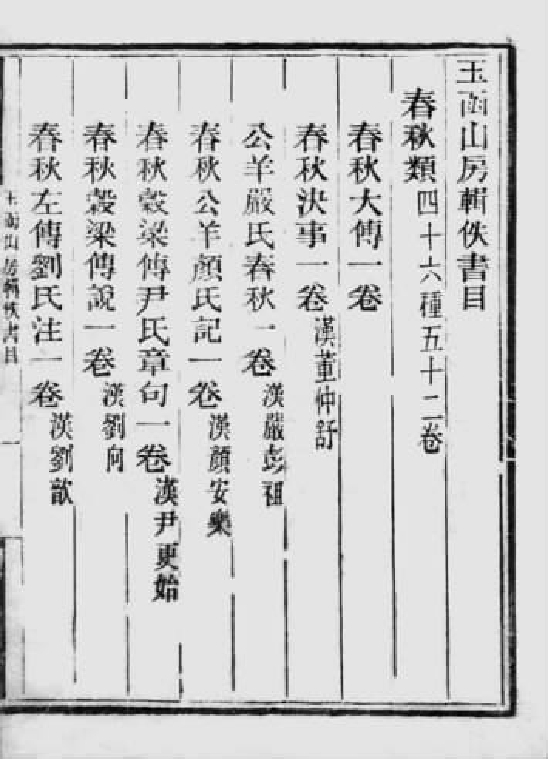 玉函山房輯佚書目
春秋類四十六種五十二卷
春秋大傳一卷
春秋決事一卷漢董仲舒
公羊嚴氏春秋一卷漢嚴彭祖
春秋公羊顏氏記一卷漢顏安樂
春秋穀梁傳尹氏章句一卷漢尹更始
春秋穀梁傳說一卷漢劉向
春秋左傳劉氏注一卷漢劉歆
玉函山房輯佚書目
一